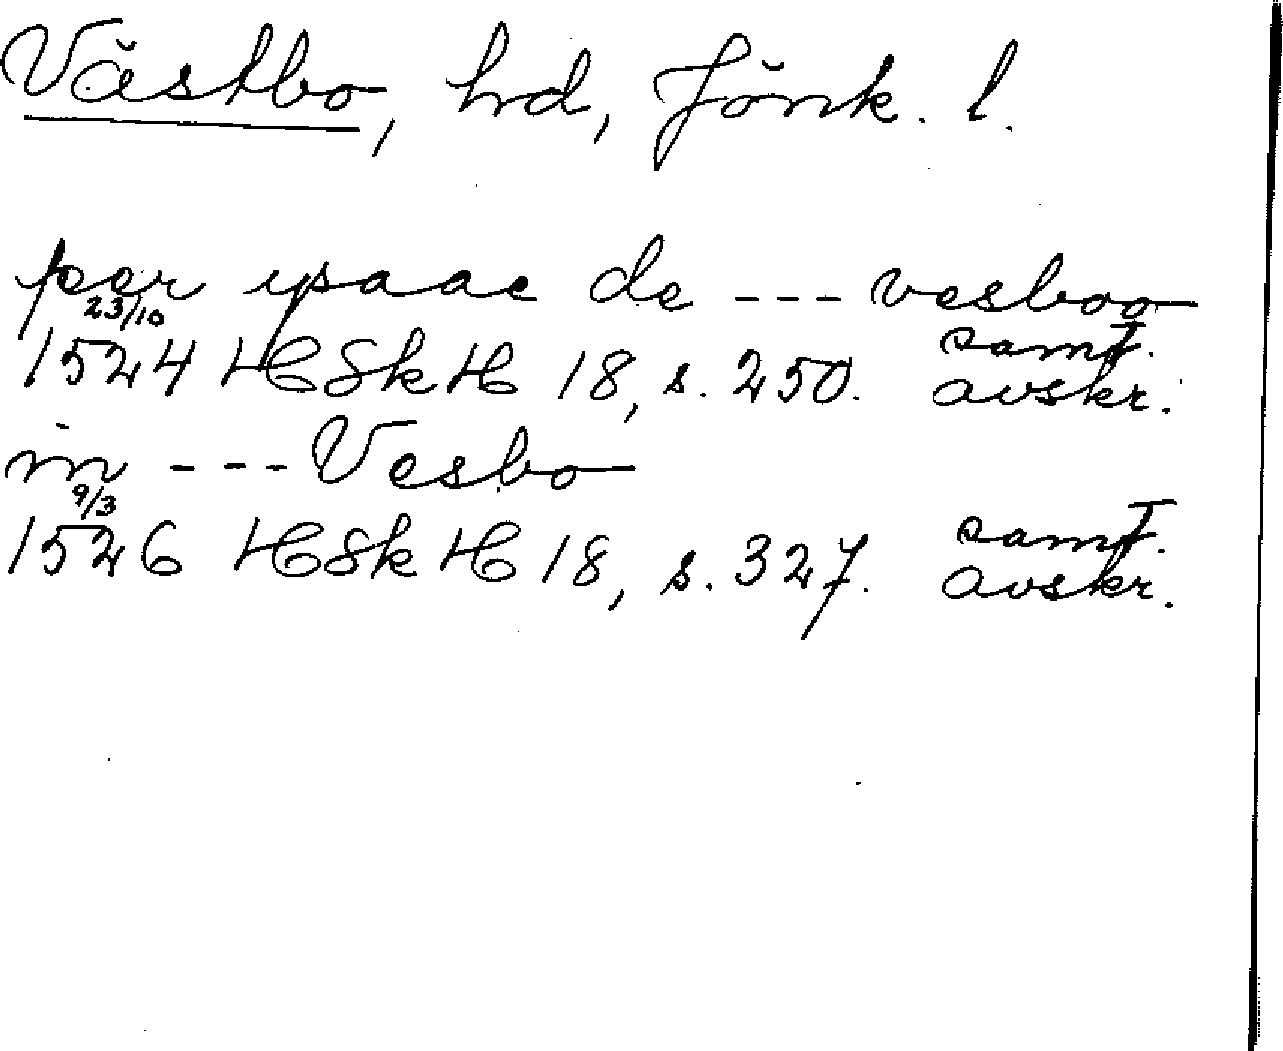 Västbo, hd, Jönk. l.
per ysaac de --- vesboo
23/10
1524 HSkH 18, s. 250. samt. avskr.
in --- Vesbo
9/3
1526 HSkH 18, s. 327. samt. avskr.